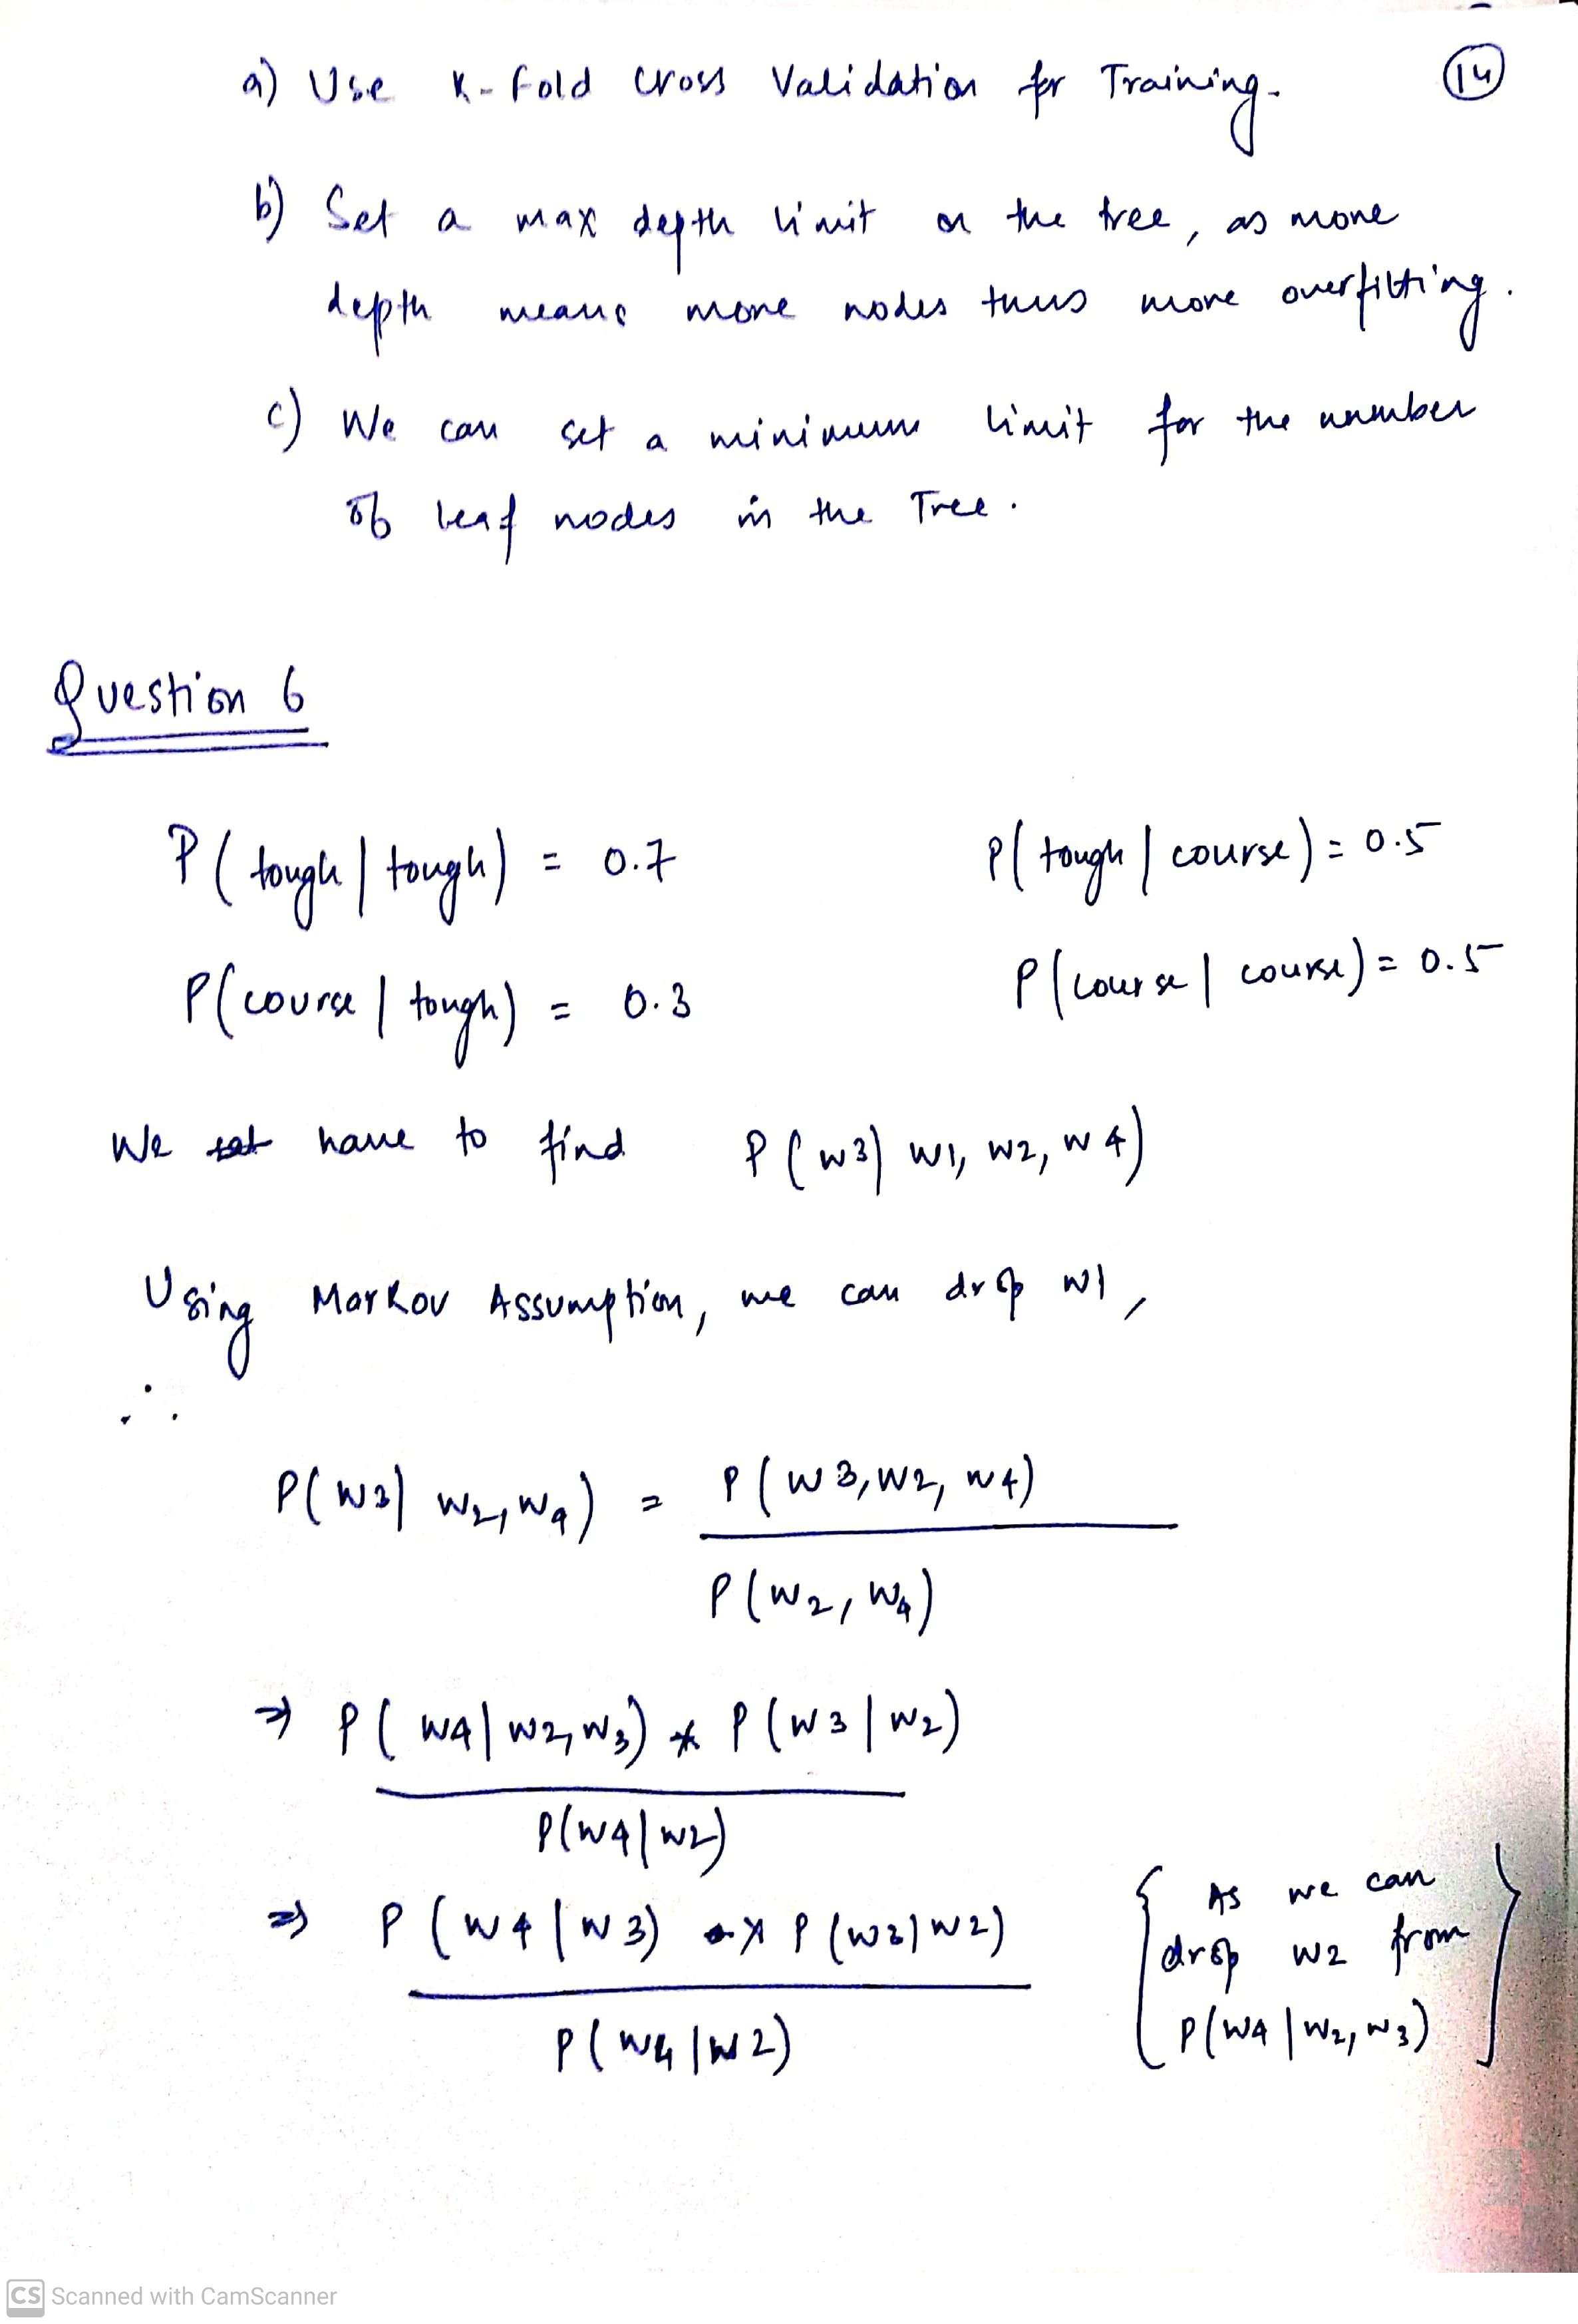 (14)
a) Use K-fold cross Validation for Training.
b) Set a max depth limit on the tree, as more
depth means more nodes thus more overfitting.
c) We can set a minimum limit for the number
of leaf nodes in the Tree.
Question 6
P(tough | tough) = 0.7 P(tough | course) = 0.5
P(course | tough) = 0.3 P(course | course) = 0.5
We have to find P(w3| w1, w2, w4)
Using Markov Assumption, we can drop w1,
∴
P(w3| w2, w4) = P(w3, w2, w4)
P(w2, w4)
⇒ P(w4| w2, w3) * P(w3 | w2)
P(w4| w2)
⇒ P(w4 | w3) * P(w3| w2)
P(w4 | w2)
{ As we can
drop w2 from
P(w4 | w2, w3) }
CS Scanned with CamScanner